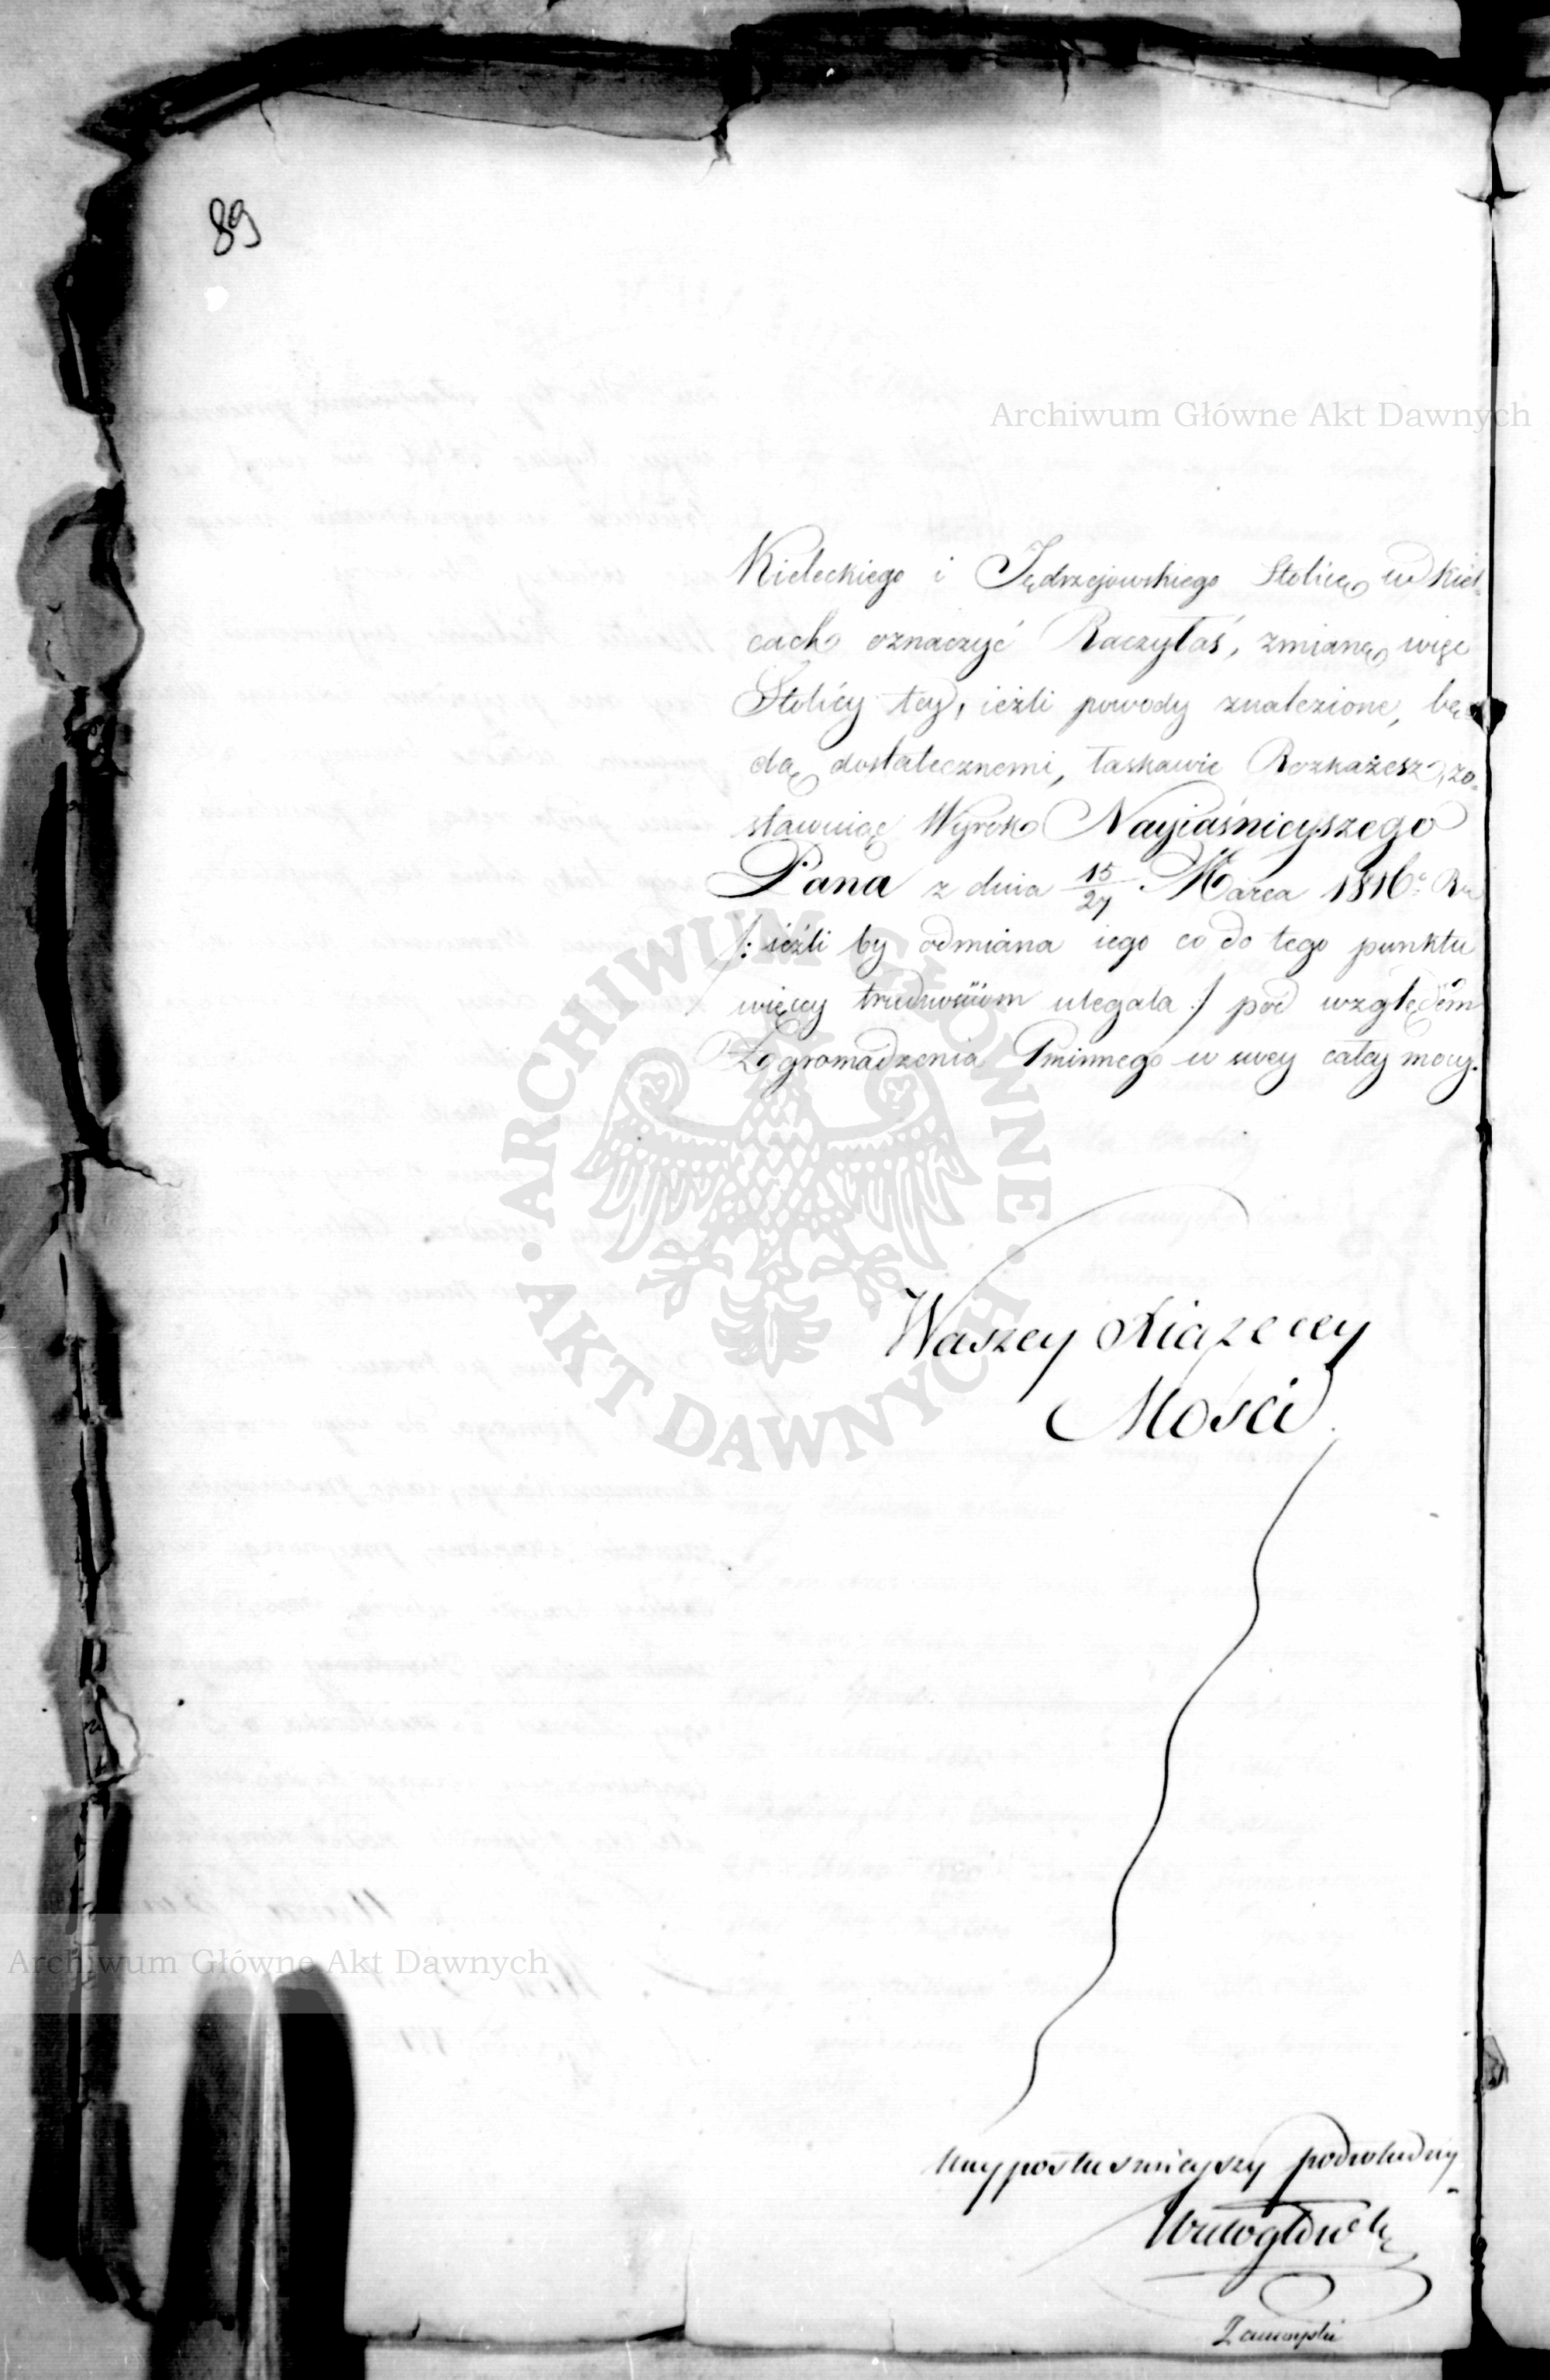 89
Archiwum Główne Akt Dawnych
Kieleckiego i Jędrzejowskiego Stolicę w Kiel-
cach oznaczyć Raczyłaś, zmianę więc
Stolicy tey, ieżli powody znalezione, bę
dą dostatecznemi, łaskawie Rozkażesz, zo-
stawuiąc Wyrok Nayiaśnieyszego
Pana z dnia 15/27 Marca 1816
/: ieżli by odmiana iego co do tego punktu
więcey trudnościom ulegała :/ pod względem
Zgromadzenia Gminnego w swey całey mocy.
ARCHIWUM GŁÓWNE · AKT DAWNYCH ·
Waszey Xiążęcey
Mości
Archiwum Główne Akt Dawnych
nayposłusznieyszy podwładny
Wielogłowski
Zamoyski